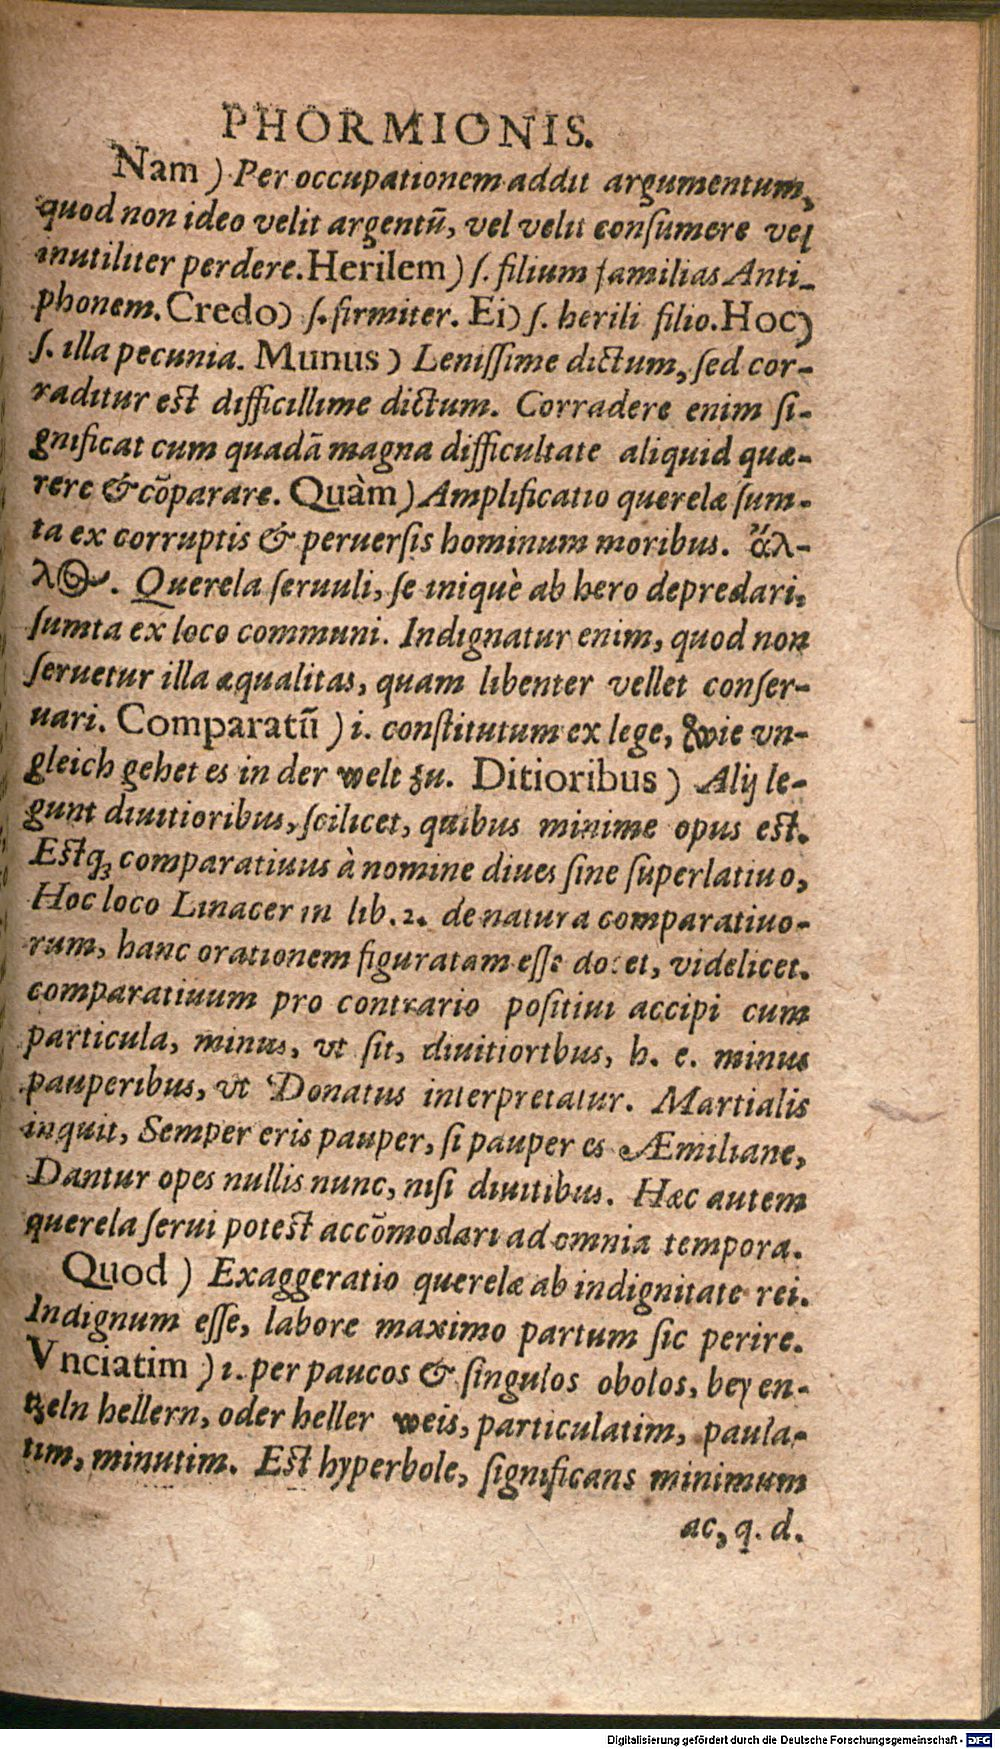 PHORMIONIS.
Nam ) Per occupationem addit argumentum,
quod non ideo velit argentū, vel velit conſumere vel
inutiliter perdere. Herilem ) ſ. filium familias Anti-
phonem. Credo) ſ. firmiter. Ei) ſ. herili filio. Hoc)
ſ. illa pecunia. Munus ) Leniſſime dictum, ſed cor-
raditur eſt difficillime dictum. Corradere enim ſi-
gnificat cum quadā magna difficultate aliquid quæ-
rere & cōparare. Quàm ) Amplificatio querelæ ſum-
ta ex corruptis & peruerſis hominum moribus. ἄλ-
λος. Querela ſeruuli, ſe iniquè ab hero depredari,
ſumta ex loco communi. Indignatur enim, quod non
ſeruetur illa æqualitas, quam libenter vellet conſer-
uari. Comparatū ) i. conſtitutum ex lege, wie vn-
gleich gehet es in der welt zu. Ditioribus ) Alij le-
gunt diuitioribus, ſcilicet, quibus minime opus eſt.
Eſtq; comparatiuus à nomine diues ſine ſuperlatiuo,
Hoc loco Linacer in lib. 2. de natura comparatiuo-
rum, hanc orationem figuratam eſſe docet, videlicet.
comparatiuum pro contrario poſitiui accipi cum
particula, minus, vt ſit, diuitioribus, h. e. minus
pauperibus, vt Donatus interpretatur. Martialis
inquit, Semper eris pauper, ſi pauper es Æmiliane,
Dantur opes nullis nunc, niſi diuitibus. Hæc autem
querela ſerui poteſt accōmodari ad omnia tempora.
Quod ) Exaggeratio querelæ ab indignitate rei.
Indignum eſſe, labore maximo partum ſic perire.
Vnciatim ) i. per paucos & ſingulos obolos, bey en-
tzeln hellern, oder heller weis, particulatim, paula-
tim, minutim. Eſt hyperbole, ſignificans minimum
ac, q. d.
Digitalisierung gefördert durch die Deutsche Forschungsgemeinschaft - DFG